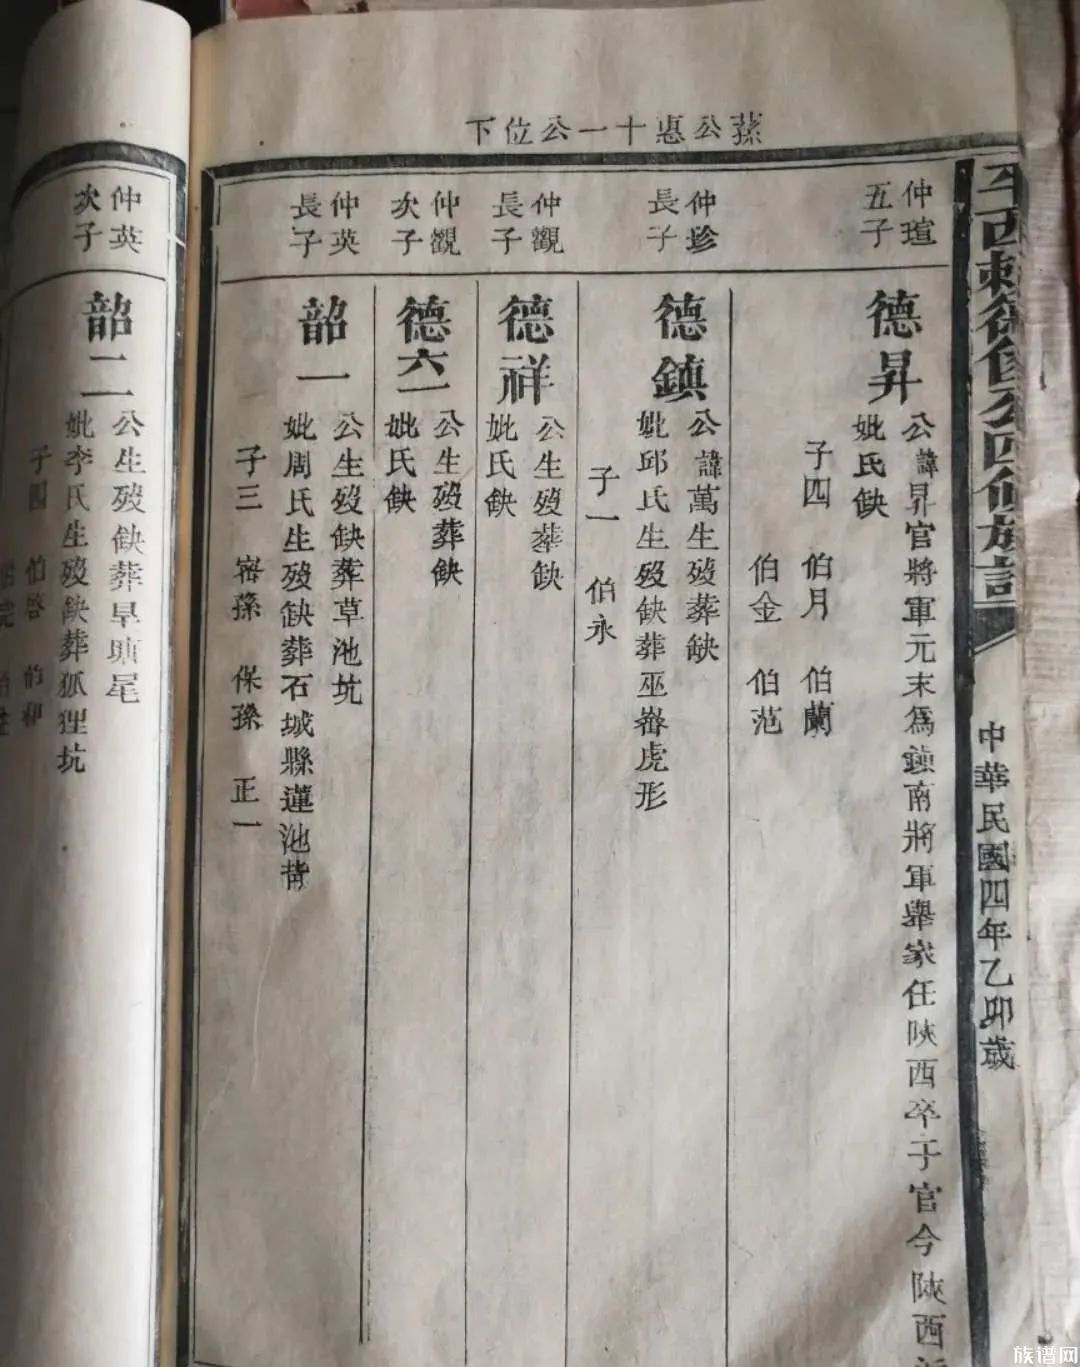 孫公惠十一公位下
中華民國四年乙卯歲
仲瑄
五子
德昇
公諱昇官將軍元末為鎮南將軍舉家任陝西卒于官今陝西
妣氏缺
子四 伯月 伯蘭
伯金 伯范
仲珍
長子
德鎮
公諱萬生歿葬缺
妣邱氏生歿缺葬巫峯虎形
子一 伯永
仲觀
長子
德祥
公生歿葬缺
妣氏缺
仲觀
次子
德六
公生歿葬缺
妣氏缺
仲英
長子
韶一
公生歿缺葬草池坑
妣周氏生歿缺葬石城縣蓮池背
子三 寄孫 保孫 正一
仲英
次子
韶二
公生歿缺葬早塘尾
妣李氏生歿缺葬狐狸坑
子四 伯啓 伯和
族谱网